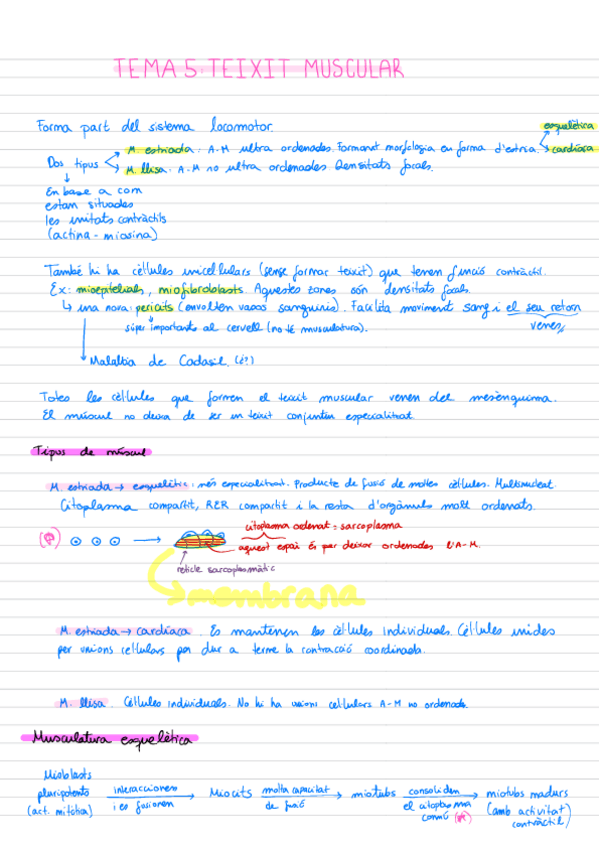 TEMA 5. TEIXIT MUSCULAR
Forma part del sistema locomotor.
esquelètica
Dos tipus
M. estriada. A-M ultra ordenades. Formant morfologia en forma d'estria.
cardíaca
M. llisa. A-M no ultra ordenades. Densitats focals.
En base a com
estam situades
les unitats contràctils
(actina - miosina)
També hi ha cèl·lules unicel·lulars (sense formar teixit) que tenen funció contràctil.
Ex: mioepitelials, miofibroblasts. Aquestes zones són densitats focals.
una nova: pericits (envolten vasos sanguinis). Facilita moviment sang i el seu retorn
súper important al cervell (no té musculatura).
venes
Malaltia de Cadasil. (é?)
Totes les cèl·lules que formen el teixit muscular venen del mesènquima.
El múscul no deixa de ser un teixit conjuntiu especialitzat.
Tipus de múscul
M. estriada → esquelètic: més especialitzat. Producte de fusió de moltes cèl·lules. Multinucleat.
Citoplasma compartit, RER compartit i la resta d'orgànuls molt ordenats.
citoplasma ordenat = sarcoplasma
aquest espai és per deixar ordenades l'A-M.
reticle sarcoplasmàtic
membrana
M. estriada → cardíaca. Es mantenen les cèl·lules individuals. Cèl·lules unides
per unions cel·lulars per dur a terme la contracció coordinada.
M. llisa. Cèl·lules individuals. No hi ha unions cel·lulars A-M no ordenada.
Musculatura esquelètica
Mioblasts
pluripotents
(act. mitòtica)
interaccionen
i es fusionen
Miocits
molta capacitat
de fusió
miotubs
consoliden
el citoplasma
comú (*)
miotubs madurs
(amb activitat
contràctil)